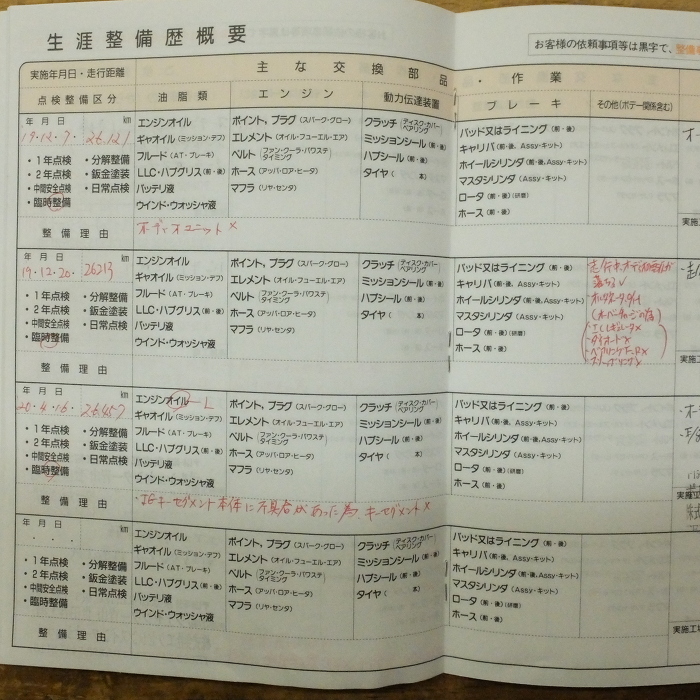 生涯整備歴概要
お客様の依頼事項等は黒字で、整備
実施年月日・走行距離 主な交換部品・作業
点検整備区分 油脂類 エンジン 動力伝達装置 ブレーキ その他(ボデー関係含む)
年 月 日 km
19・12・7・ 26,121
・1年点検 ・分解整備
・2年点検 ・鈑金塗装
・中間安全点検 ・日常点検
・臨時整備
エンジンオイル
ギャオイル(ミッション・デフ)
フルード(AT・ブレーキ)
LLC・ハブグリス(前・後)
バッテリ液
ウインド・ウォッシャ液
ポイント, プラグ(スパーク・グロー)
エレメント(オイル・フューエル・エア)
ベルト(ファン・クーラ・パワステ タイミング)
ホース(アッパ・ロア・ヒータ)
マフラ(リヤ・センタ)
クラッチ(ディスク・カバー ベアリング)
ミッションシール(前・後)
ハブシール(前・後)
タイヤ( 本)
パッド又はライニング(前・後)
キャリパ(前・後, Assy・キット)
ホイールシリンダ(前・後, Assy・キット)
マスタシリンダ(Assy・キット)
ロータ(前・後)(研磨)
ホース(前・後)
整備理由 オーディオユニット×
実施
年 月 日 km
19・12・20・ 26213
・1年点検 ・分解整備
・2年点検 ・鈑金塗装
・中間安全点検 ・日常点検
・臨時整備
エンジンオイル
ギャオイル(ミッション・デフ)
フルード(AT・ブレーキ)
LLC・ハブグリス(前・後)
バッテリ液
ウインド・ウォッシャ液
ポイント, プラグ(スパーク・グロー)
エレメント(オイル・フューエル・エア)
ベルト(ファン・クーラ・パワステ タイミング)
ホース(アッパ・ロア・ヒータ)
マフラ(リヤ・センタ)
クラッチ(ディスク・カバー ベアリング)
ミッションシール(前・後)
ハブシール(前・後)
タイヤ( 本)
パッド又はライニング(前・後)
キャリパ(前・後, Assy・キット)
ホイールシリンダ(前・後, Assy・キット)
マスタシリンダ(Assy・キット)
ロータ(前・後)(研磨)
ホース(前・後)
オルタネータ
(オーバーチャージの為)
整備理由
実施工
年 月 日 km
20・4・16・ 26457
・1年点検 ・分解整備
・2年点検 ・鈑金塗装
・中間安全点検 ・日常点検
・臨時整備
エンジンオイル
ギャオイル(ミッション・デフ)
フルード(AT・ブレーキ)
LLC・ハブグリス(前・後)
バッテリ液
ウインド・ウォッシャ液
ポイント, プラグ(スパーク・グロー)
エレメント(オイル・フューエル・エア)
ベルト(ファン・クーラ・パワステ タイミング)
ホース(アッパ・ロア・ヒータ)
マフラ(リヤ・センタ)
クラッチ(ディスク・カバー ベアリング)
ミッションシール(前・後)
ハブシール(前・後)
タイヤ( 本)
パッド又はライニング(前・後)
キャリパ(前・後, Assy・キット)
ホイールシリンダ(前・後, Assy・キット)
マスタシリンダ(Assy・キット)
ロータ(前・後)(研磨)
ホース(前・後)
整備理由 キーセグメント本体に不具合があった為、キーセグメント×
年 月 日 km
・1年点検 ・分解整備
・2年点検 ・鈑金塗装
・中間安全点検 ・日常点検
・臨時整備
エンジンオイル
ギャオイル(ミッション・デフ)
フルード(AT・ブレーキ)
LLC・ハブグリス(前・後)
バッテリ液
ウインド・ウォッシャ液
ポイント, プラグ(スパーク・グロー)
エレメント(オイル・フューエル・エア)
ベルト(ファン・クーラ・パワステ タイミング)
ホース(アッパ・ロア・ヒータ)
マフラ(リヤ・センタ)
クラッチ(ディスク・カバー ベアリング)
ミッションシール(前・後)
ハブシール(前・後)
タイヤ( 本)
パッド又はライニング(前・後)
キャリパ(前・後, Assy・キット)
ホイールシリンダ(前・後, Assy・キット)
マスタシリンダ(Assy・キット)
ロータ(前・後)(研磨)
ホース(前・後)
整備理由
実施工